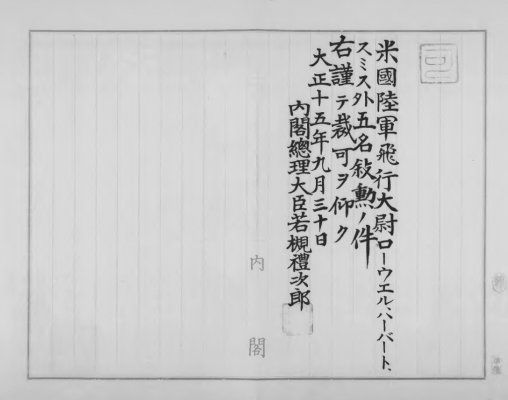 米國陸軍飛行大尉ローウエル、ハーバート、
スミス外五名敍勲ノ件
右謹テ裁可ヲ仰ク
大正十五年九月三十日
內閣總理大臣若槻禮次郎
內閣